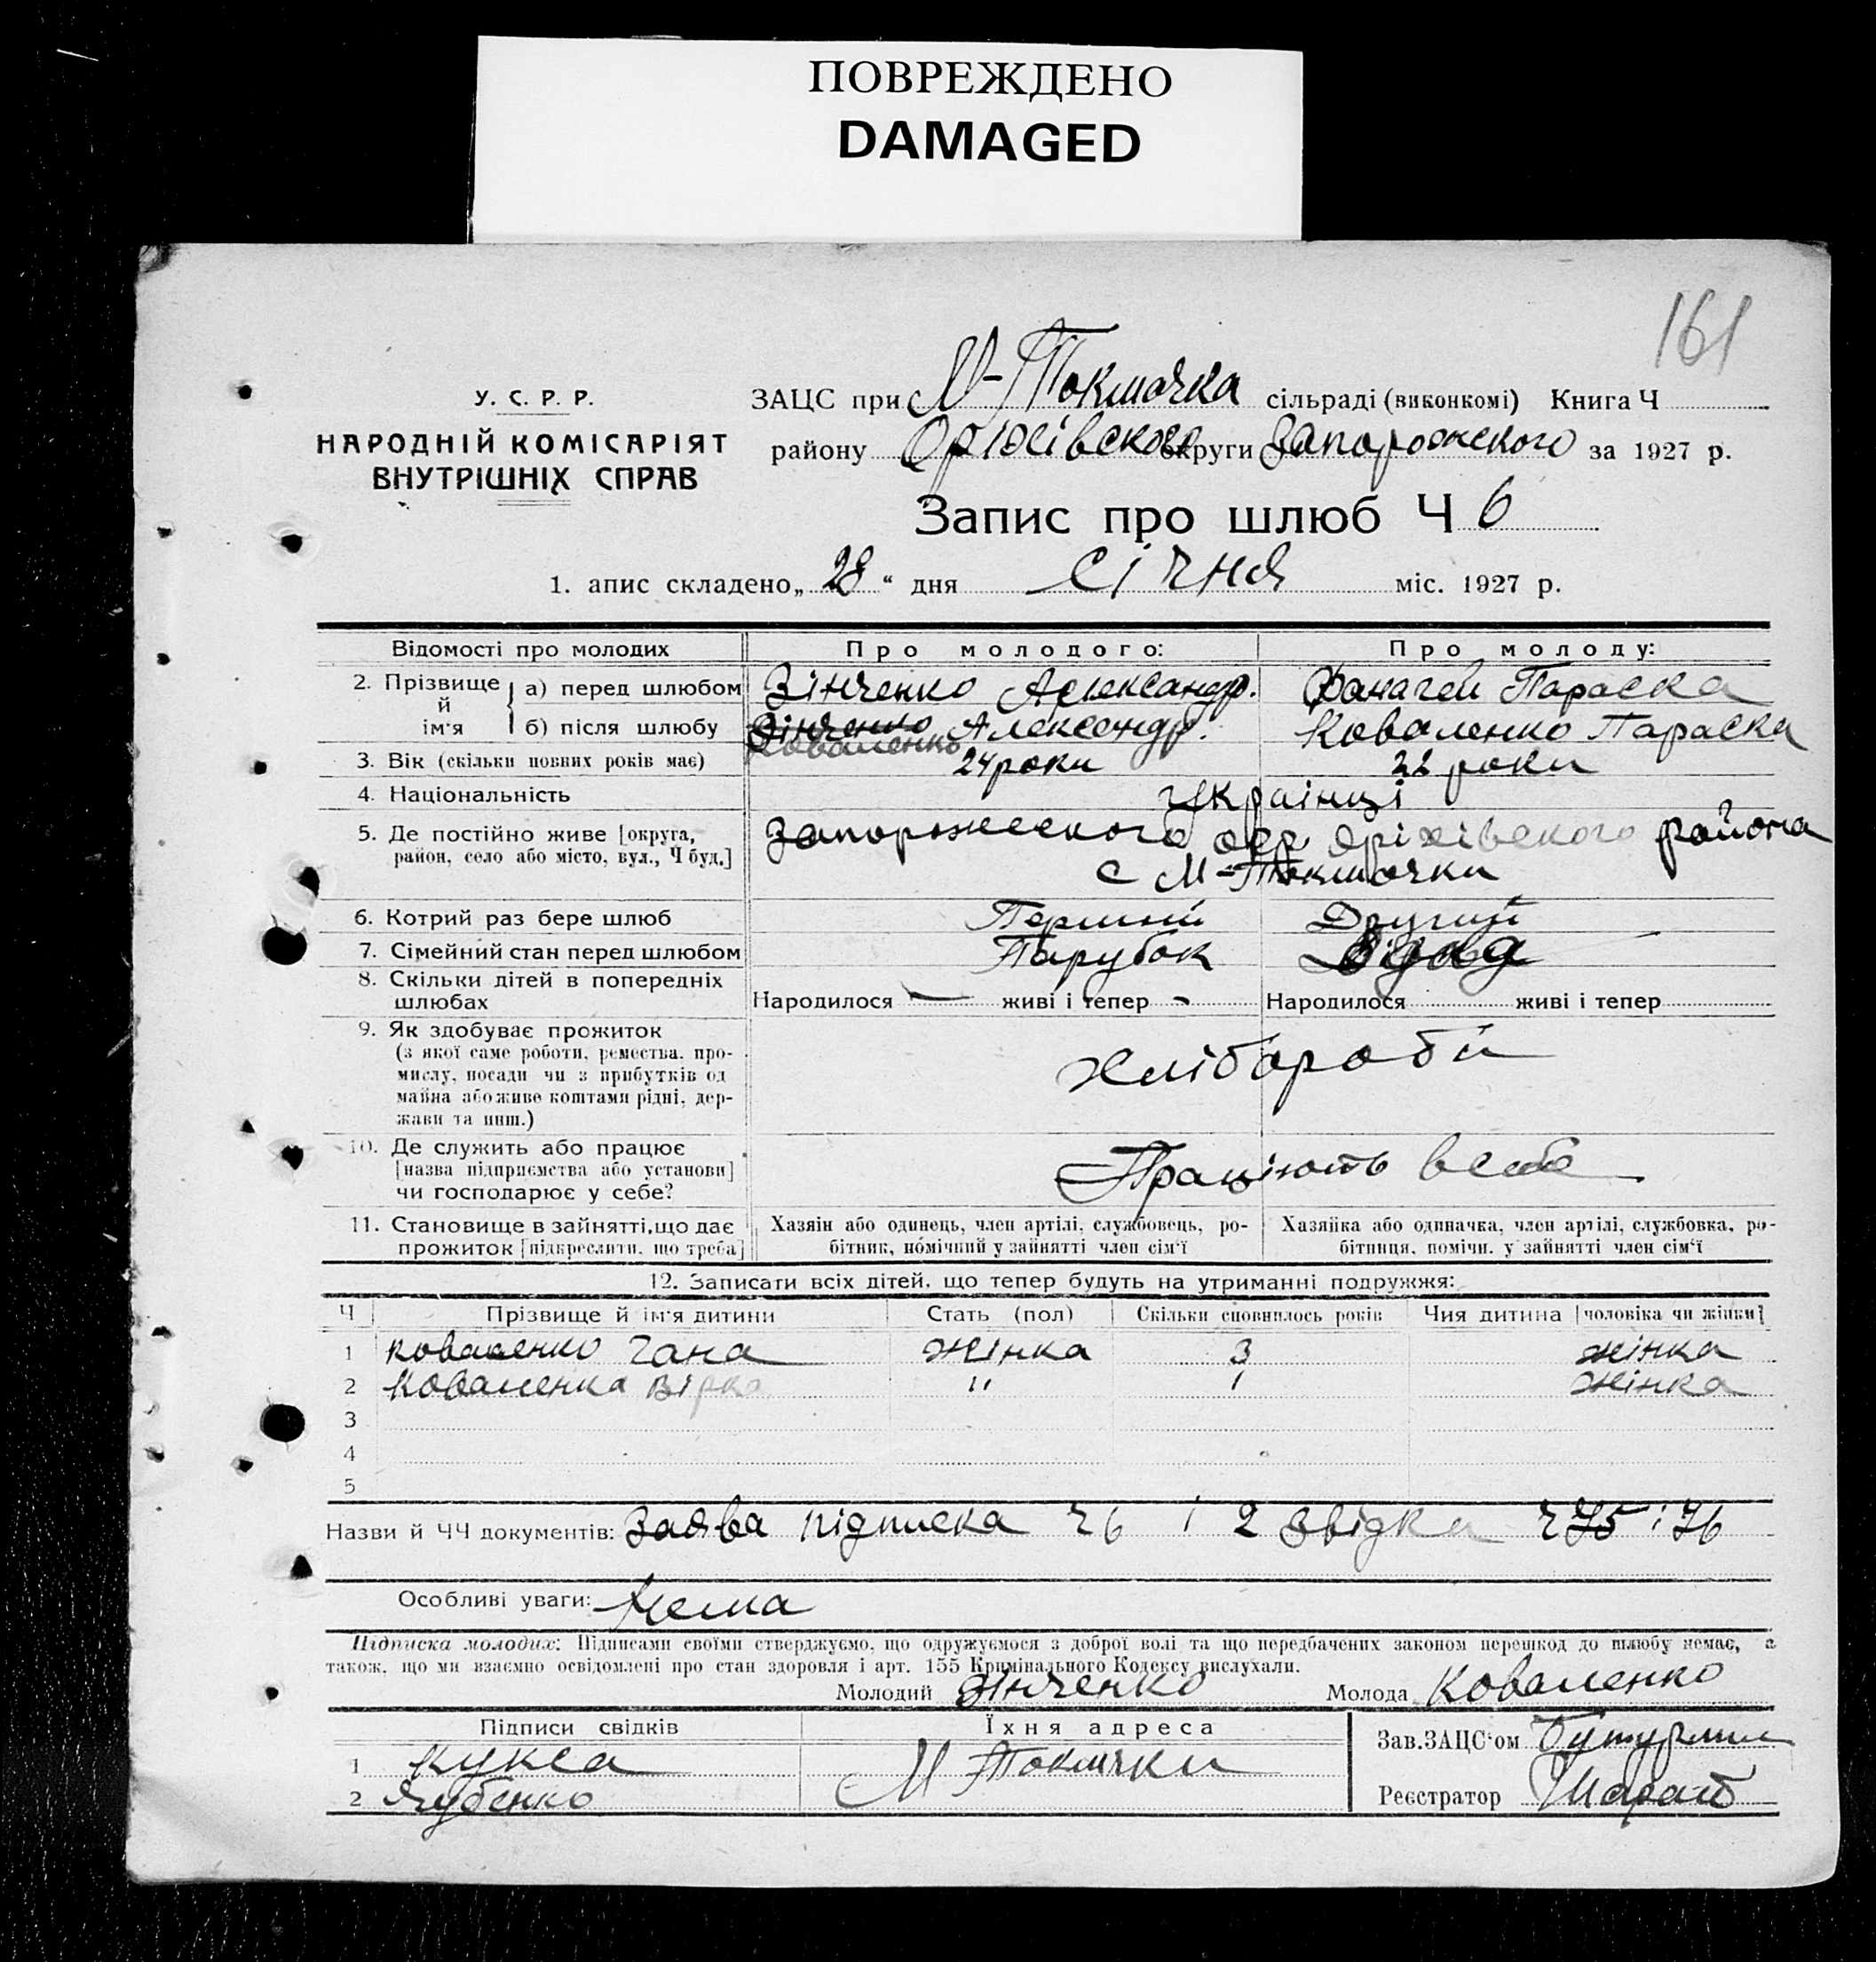 ПОВРЕЖДЕНО
DAMAGED
161
У. С. Р. Р.
НАРОДНІЙ КОМІСАРІЯТ
ВНУТРІШНІХ СПРАВ
ЗАЦС при М-Токмачка сільраді (виконкомі) Книга Ч
району Оріхівского округи Запорожского за 1927 р.
Запис про шлюб Ч 6
1. апис складено „28“ дня січня міс. 1927 р.
Відомості про молодих Про молодого: Про молоду:
2. Прізвище й ім'я а) перед шлюбом Зінченко Александр. Параска
б) після шлюбу Зінченко Александр. Коваленко Параска
Коваленко
3. Вік (скільки повних років має) 24 роки 22 роки
4. Національність Украінці
5. Де постійно живе [округа, Запорожського окр Оріхівского района
район, село або місто, вул., Ч буд.] с М-Токмачки
6. Котрий раз бере шлюб Перший Другий
7. Сімейний стан перед шлюбом Парубок
8. Скільки дітей в попередніх
шлюбах Народилося — живі і тепер - Народилося живі і тепер
9. Як здобуває прожиток
(з якої саме роботи, ремества, про-
мислу, посади чи з прибутків од
майна або живе коштами рідні, дер-
жави та инш.)
хліборобы
10. Де служить або працює
[назва підприємства або установи]
чи господарює у себе?
Праціють в себе
11. Становище в зайнятті, що дає Хазяін або одинець, член артілі, службовець, ро- Хазяйка або одиначка, член артілі, службовка, ро-
прожиток [підкреслити, що треба] бітник, помічний у зайнятті член сім'ї бітниця, помічн. у зайнятті член сім'ї
12. Записати всіх дітей, що тепер будуть на утриманні подружжя:
Ч Прізвище й ім'я дитини Стать (пол) Скільки сповнилось років Чия дитина [чоловіка чи жінки]
1 Коваленко Гана жінка 3 жінка
2 Коваленка Вірка " 1 жінка
3
4
5
Назви й ЧЧ документів: Заява підписка ч 6 і 2 звідки ч 75 і 76
Особливі уваги: Нема
Підписка молодих: Підписами своїми стверджуємо, що одружуємося з доброї волі та що передбачених законом перешкод до шлюбу немає, а
також, що ми взаємно освідомлені про стан здоровля і арт. 155 Кримінального Кодексу вислухали.
Молодий Зінченко Молода Коваленко
Підписи свідків Їхня адреса Зав. ЗАЦС'ом
1 Кукса М Токмачки
2 Якубенко Реєстратор